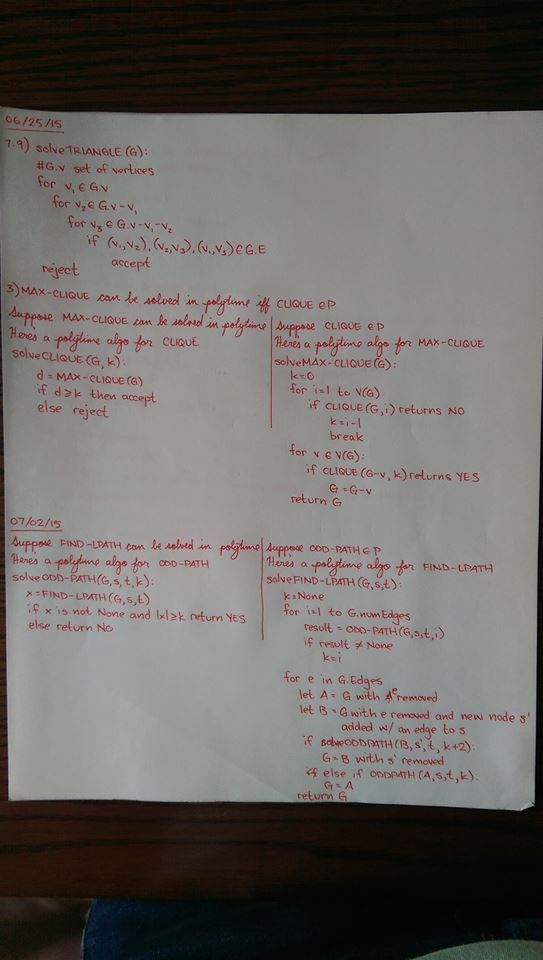 06/25/15
7.9) solveTRIANGLE(G):
#G.V set of vertices
for v₁ ∈ G.V
for v₂ ∈ G.V - v₁
for v₃ ∈ G.V - v₁ - v₂
if (v₁,v₂), (v₂,v₃), (v₁,v₃) ∈ G.E
accept
reject
3) MAX-CLIQUE can be solved in polytime iff CLIQUE ∈ P
Suppose MAX-CLIQUE can be solved in polytime
Here's a polytime algo for CLIQUE
solveCLIQUE(G, k):
d = MAX-CLIQUE(G)
if d ≥ k then accept
else reject
Suppose CLIQUE ∈ P
Here's a polytime algo for MAX-CLIQUE
solveMAX-CLIQUE(G):
k=0
for i=1 to V(G):
if CLIQUE(G,i) returns NO
k=i-1
break
for v ∈ V(G):
if CLIQUE(G-v, k) returns YES
G = G-v
return G
07/02/15
Suppose FIND-LPATH can be solved in polytime
Here's a polytime algo for ODD-PATH
solveODD-PATH(G,s,t,k):
x = FIND-LPATH(G,s,t)
if x is not None and |x| ≥ k return YES
else return NO
Suppose ODD-PATH ∈ P
Here's a polytime algo for FIND-LPATH
solveFIND-LPATH(G,s,t):
k=None
for i=1 to G.numEdges
result = ODD-PATH(G,s,t,i)
if result ≠ None
k=i
for e in G.Edges
let A = G with e removed
let B = G with e removed and new node s'
added w/ an edge to s
if solveODDPATH(B, s', t, k+2):
G = B with s' removed
else if ODDPATH(A,s,t,k):
G = A
return G